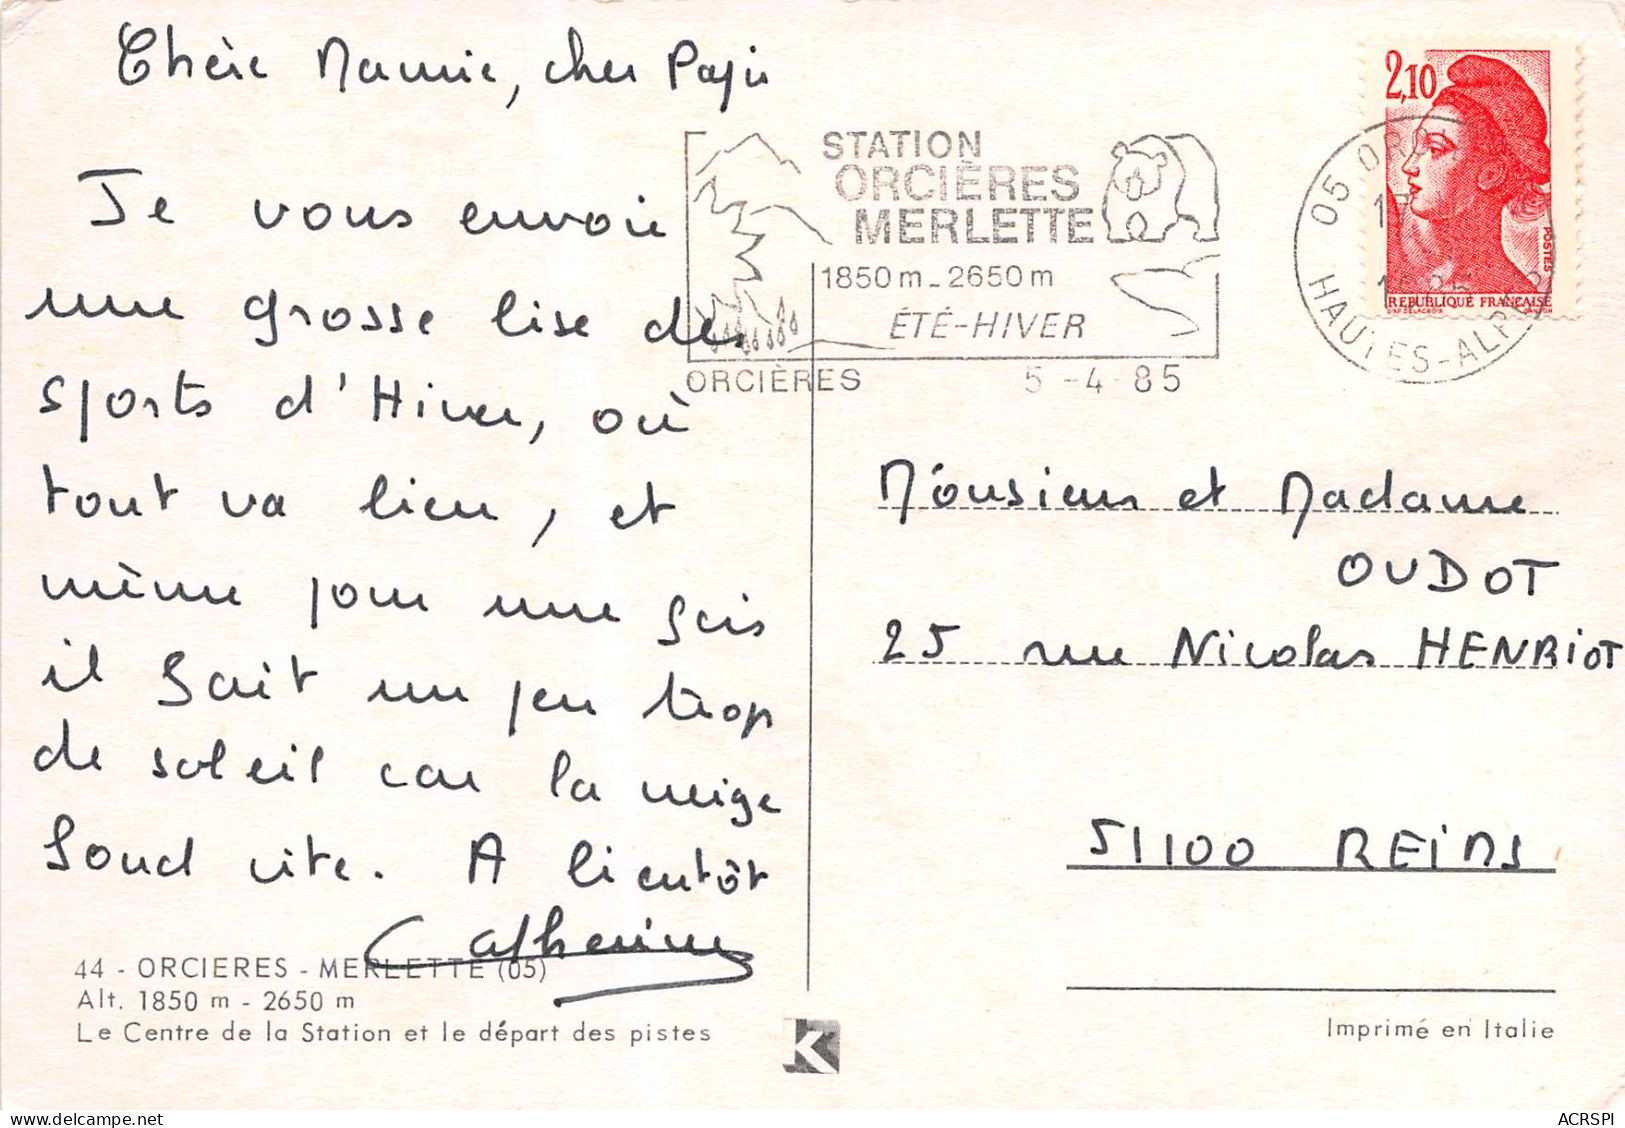 Chère Mamie, cher Papi
Je vous envoie
une grosse bise des
sports d'Hiver, où
tout va bien, et
même pour une fois
il fait un peu trop
de soleil car la neige
fond vite. A bientôt
Catherine
44 - ORCIERES - MERLETTE (05)
Alt. 1850 m - 2650 m
Le Centre de la Station et le départ des pistes
K
STATION
ORCIÈRES
MERLETTE
1850 m - 2650 m
ÉTÉ-HIVER
ORCIÈRES 5 -4 85
05
HAUTES-ALPES
2,10
POSTES
REPUBLIQUE FRANÇAISE
D'AP. DELACROIX GANDON
Monsieur et Madame
OUDOT
25 rue Nicolas HENRIOT
51100 REIMS
Imprimé en Italie
ACRSPI